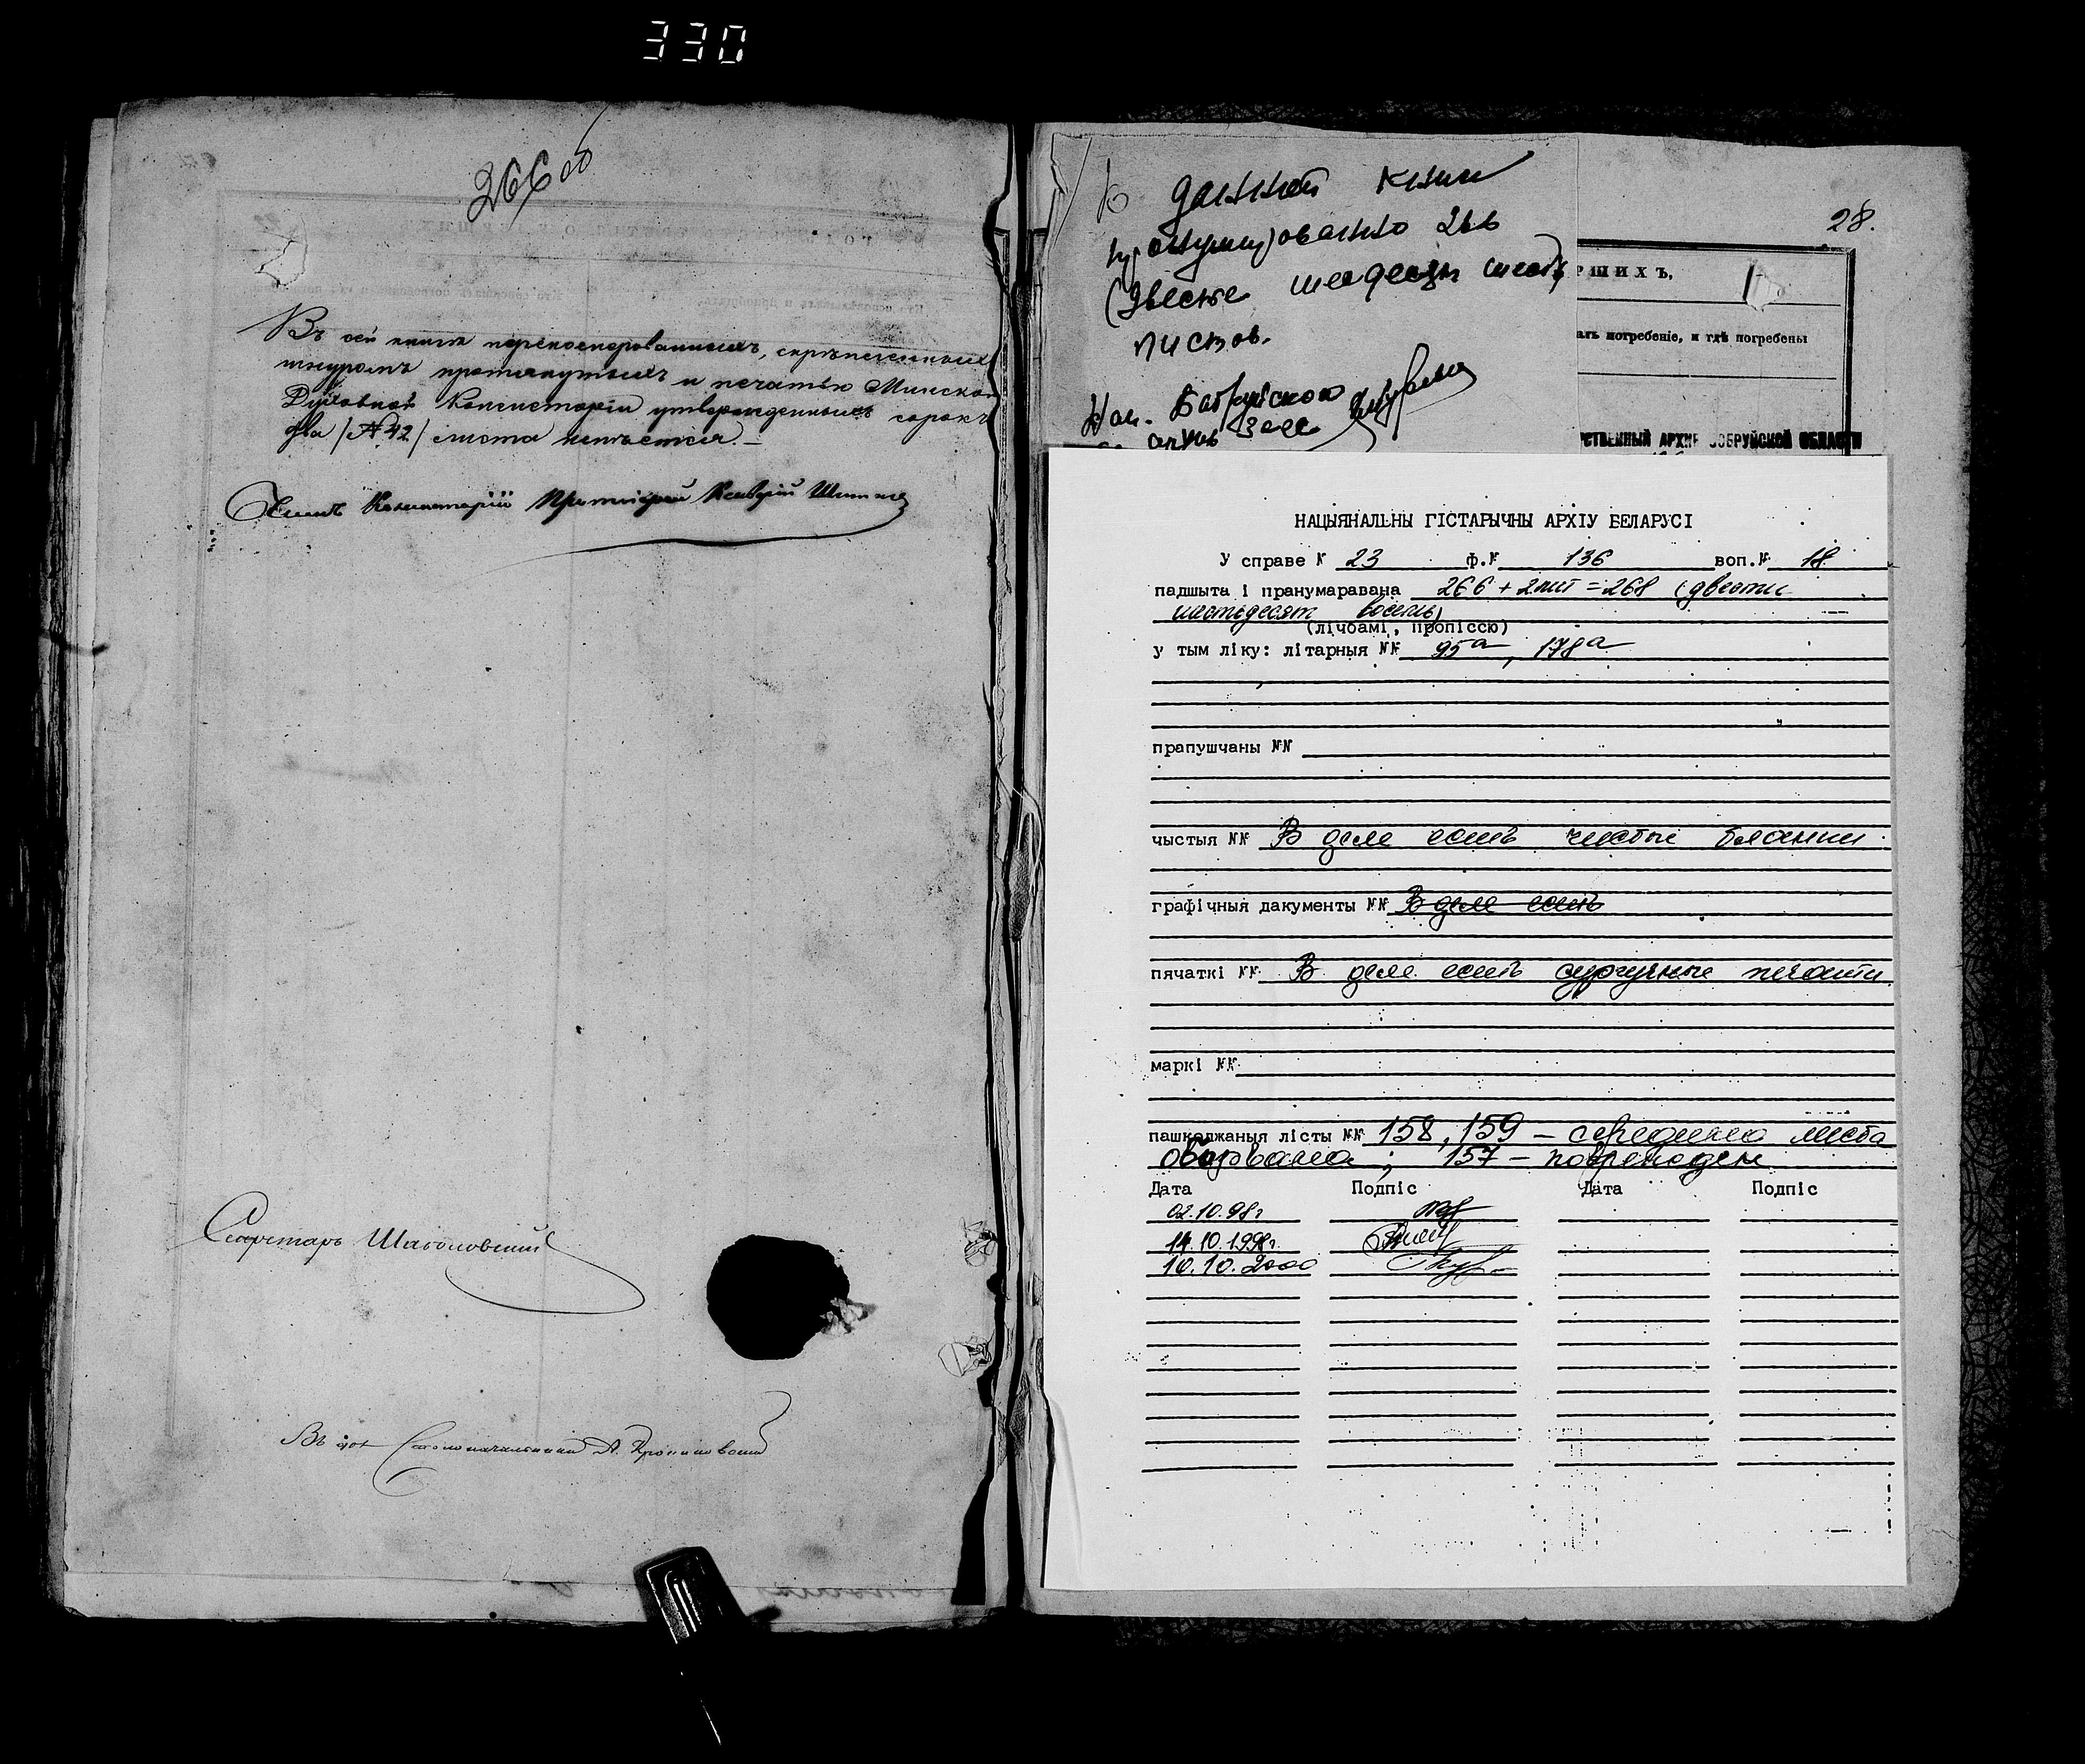 330
266 об
Въ сей книгѣ перенумерованныхъ, скрѣпленныхъ
шнуромъ протянутыхъ и печатью Минской
Духовной Консисторіи утвержденныхъ сорокъ
два /№ 42/ листа имѣется.
Членъ Консисторіи Протоіерей
Секретарь
Столоначальникъ А.
В данной книги
пронумеровано 266
(двести шесдесят шесть)
листов.
Нач. Бобруйского
28.
РШИХЪ.
алъ погребеніе, и гдѣ погребены
РСТВЕННЫЙ АРХИВ БОБРУЙСКОЙ ОБЛАСТИ
НАЦЫЯНАЛЬНЫ ГІСТАРЫЧНЫ АРХІУ БЕЛАРУСІ
У справе № 23 ф.№ 136 воп.№ 18
падшыта і пранумаравана 266 + 2лит = 268 (двести
шестьдесят восемь)
(лічбамі, пропіссю)
у тым ліку: літарныя №№ 95а, 178а
прапушчаны №№
чыстыя №№ В деле есть чистые бланки
графічныя дакументы №№ В деле есть
пячаткі №№ В деле есть сургучные печати
маркі №№
пашкоджаныя лісты №№ 158, 159 – середина листа
оборвана; 157 – поврежден
Дата Подпіс Дата Подпіс
02.10.98г
14.10.1998г.
10.10.2000